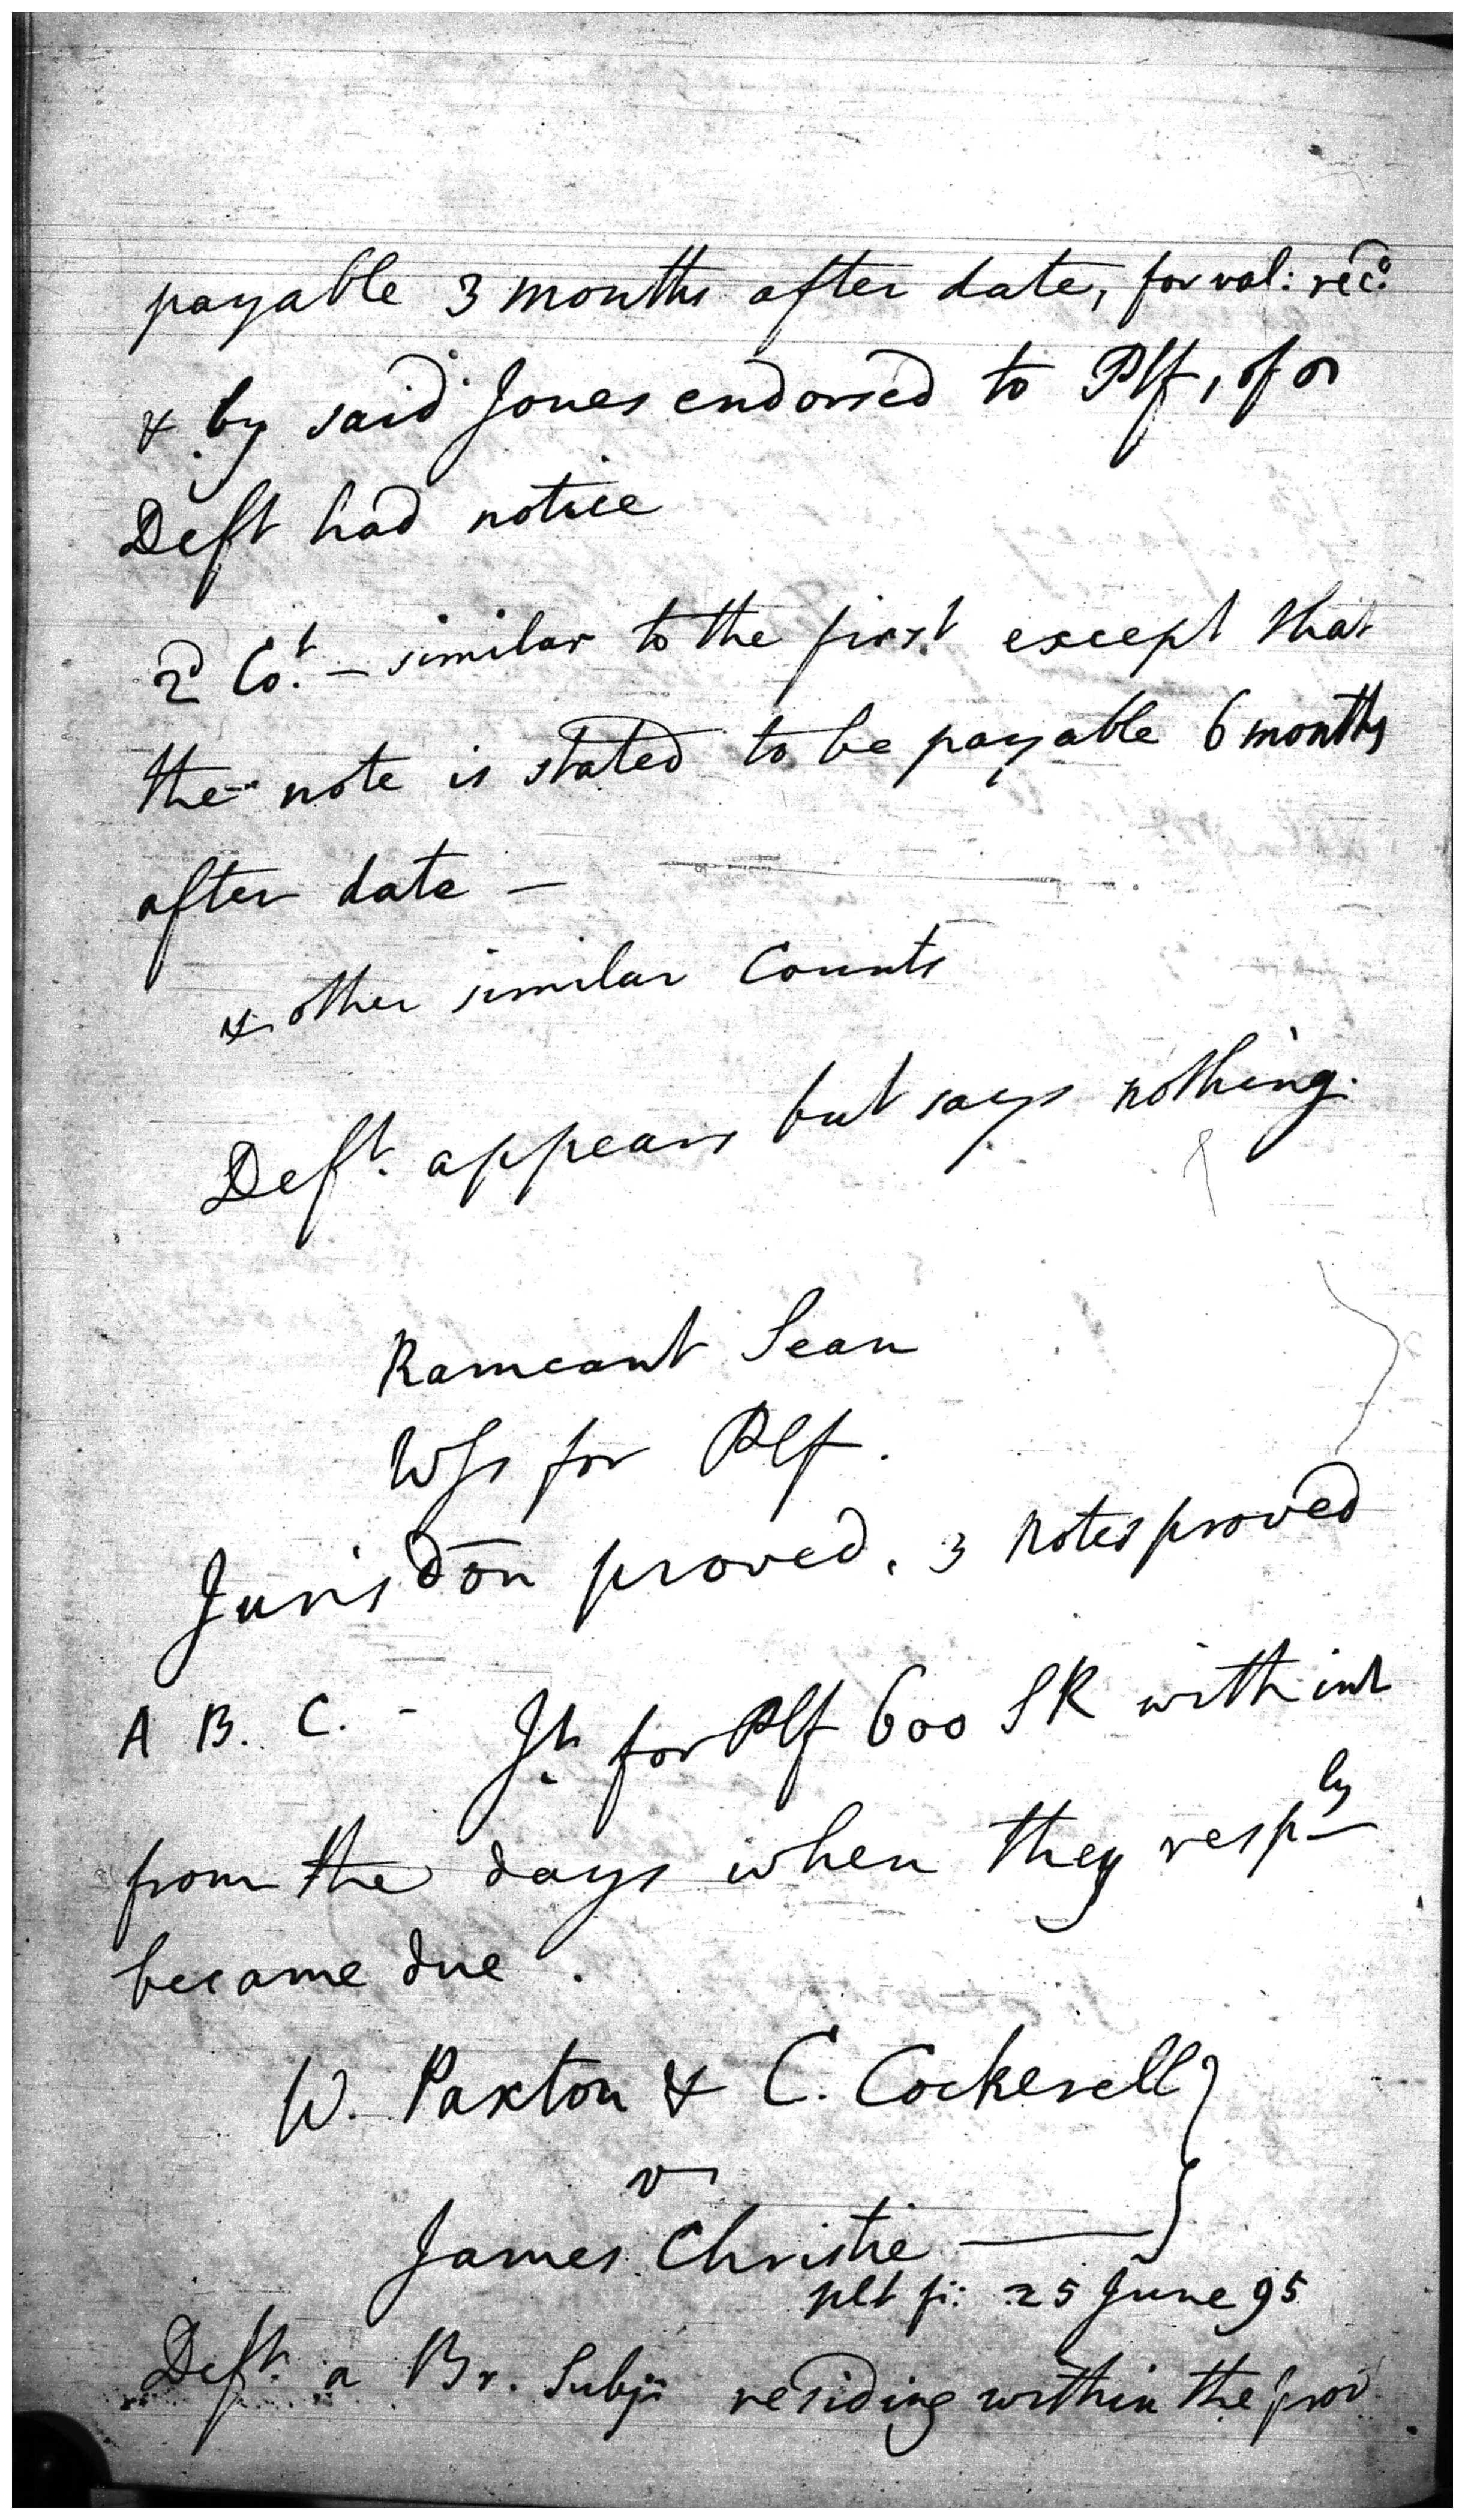 payable 3 months after date, for val: recd:
& by said Jones endorsed to Plf, of
Deft had notice
2d Cot. – similar to the first except that
the note is stated to be payable 6 months
after date –
& other similar Counts
Deft. appears but says nothing.
Ramcant Sean
Ws for Plf.
Jurisdōn proved. 3 notes proved
A B. C. - Jt. for Plf 600 SR with int
from the days when they resply
became due.
W. Paxton & C. Cockerell
v
James Christie
plt fi: 25 June 95
Deft. a Br. Subj: residing within the prov